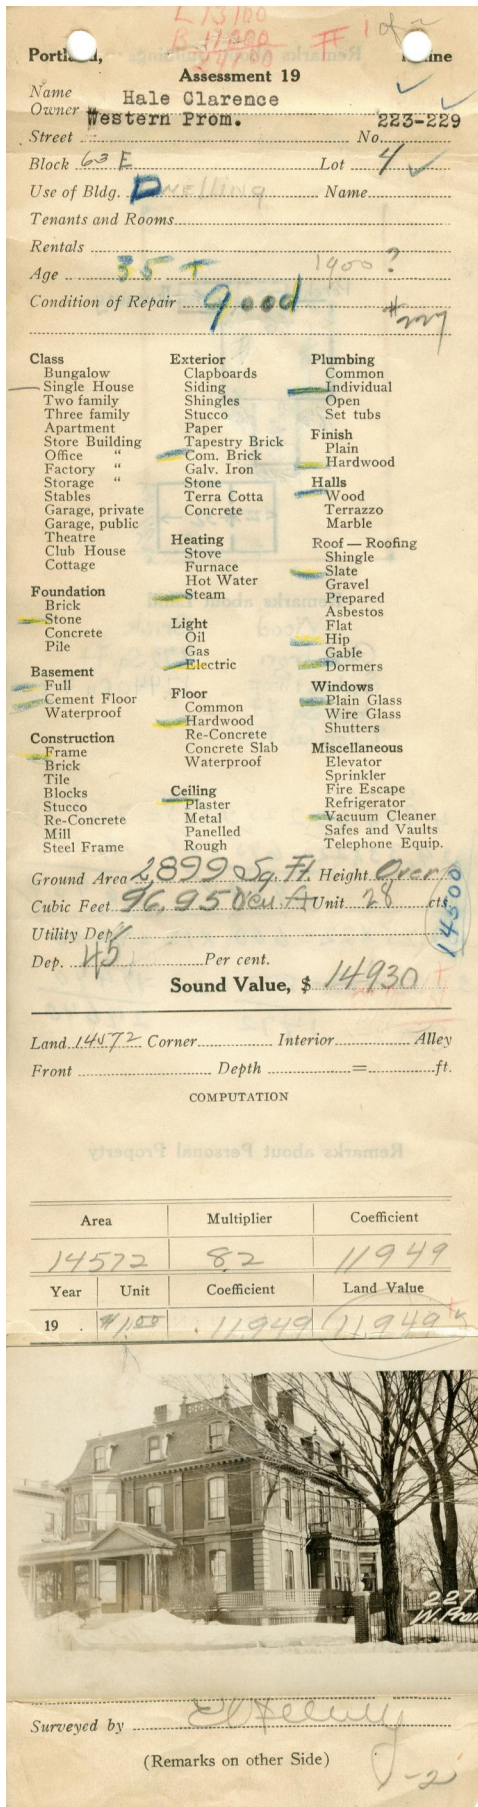 L 13100
B 11800
# 1 of 2
Portland, Maine
Assessment 19
Name
Owner Hale Clarence
Street Western Prom. No. 223-229
Block 63 E Lot 4
Use of Bldg. Dwelling Name
Tenants and Rooms
Rentals
Age 35 + 1900 ?
Condition of Repair good #227
Class
Bungalow
Single House
Two family
Three family
Apartment
Store Building
Office "
Factory "
Storage "
Stables
Garage, private
Garage, public
Theatre
Club House
Cottage
Foundation
Brick
Stone
Concrete
Pile
Basement
Full
Cement Floor
Waterproof
Construction
Frame
Brick
Tile
Blocks
Stucco
Re-Concrete
Mill
Steel Frame
Exterior
Clapboards
Siding
Shingles
Stucco
Paper
Tapestry Brick
Com. Brick
Galv. Iron
Stone
Terra Cotta
Concrete
Heating
Stove
Furnace
Hot Water
Steam
Light
Oil
Gas
Electric
Floor
Common
Hardwood
Re-Concrete
Concrete Slab
Waterproof
Ceiling
Plaster
Metal
Panelled
Rough
Plumbing
Common
Individual
Open
Set tubs
Finish
Plain
Hardwood
Halls
Wood
Terrazzo
Marble
Roof — Roofing
Shingle
Slate
Gravel
Prepared
Asbestos
Flat
Hip
Gable
Dormers
Windows
Plain Glass
Wire Glass
Shutters
Miscellaneous
Elevator
Sprinkler
Fire Escape
Refrigerator
Vacuum Cleaner
Safes and Vaults
Telephone Equip.
Ground Area 2899 Sq. Ft. Height Over
Cubic Feet 96,950 cu ft Unit 28 cts.
14500
Utility Dep.
Dep. 45 Per cent.
Sound Value, $ 14930
Land 14572 Corner Interior Alley
Front Depth = ft.
COMPUTATION
Remarks about Personal Property
Area Multiplier Coefficient
14572 82 11949
Year Unit Coefficient Land Value
19 . $1.00 11949 11949
227
W. Prom
Surveyed by
(Remarks on other Side)
-2